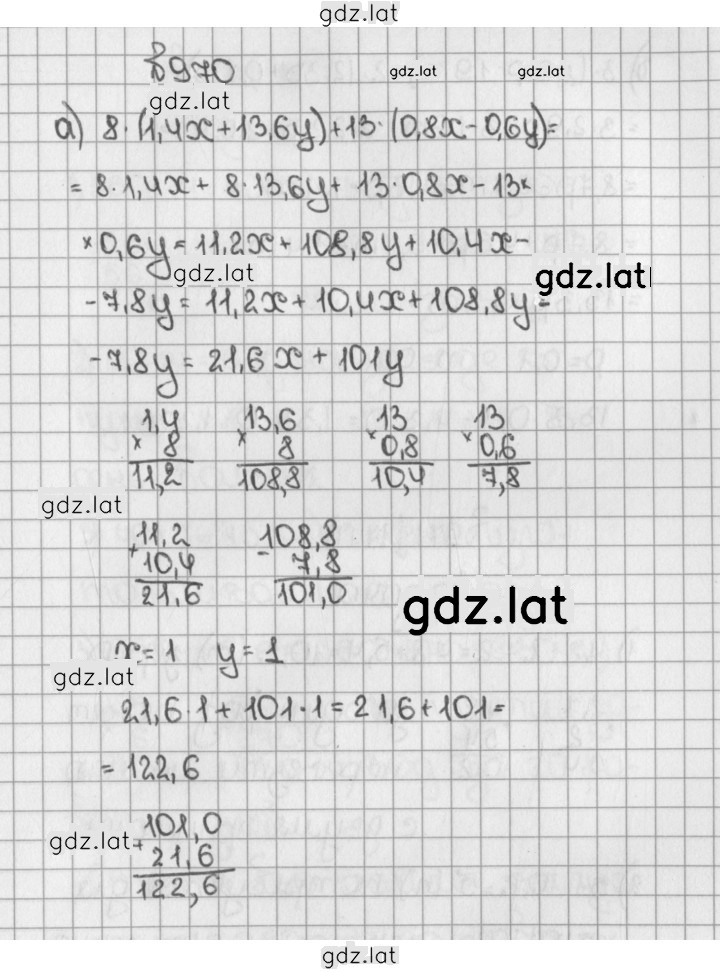 gdz.lat
№970
gdz.lat gdz.lat
gdz.lat
а) 8·(1,4x+13,6y)+13·(0,8x-0,6y)=
=8·1,4x+ 8·13,6y+ 13·0,8x-13×
×0,6y=11,2x+108,8y+10,4x-
gdz.lat gdz.lat
-7,8y= 11,2x+10,4x+108,8y-
-7,8y=21,6x+101y
1,4 13,6 13 13
× 8 × 8 × 0,8 × 0,6
11,2 108,8 10,4 7,8
gdz.lat
11,2 108,8
+ 10,4 - 7,8
21,6 101,0
gdz.lat
x=1 y=1
gdz.lat
21,6·1+101·1=21,6+101=
=122,6
101,0
gdz.lat
+ 21,6
122,6
gdz.lat